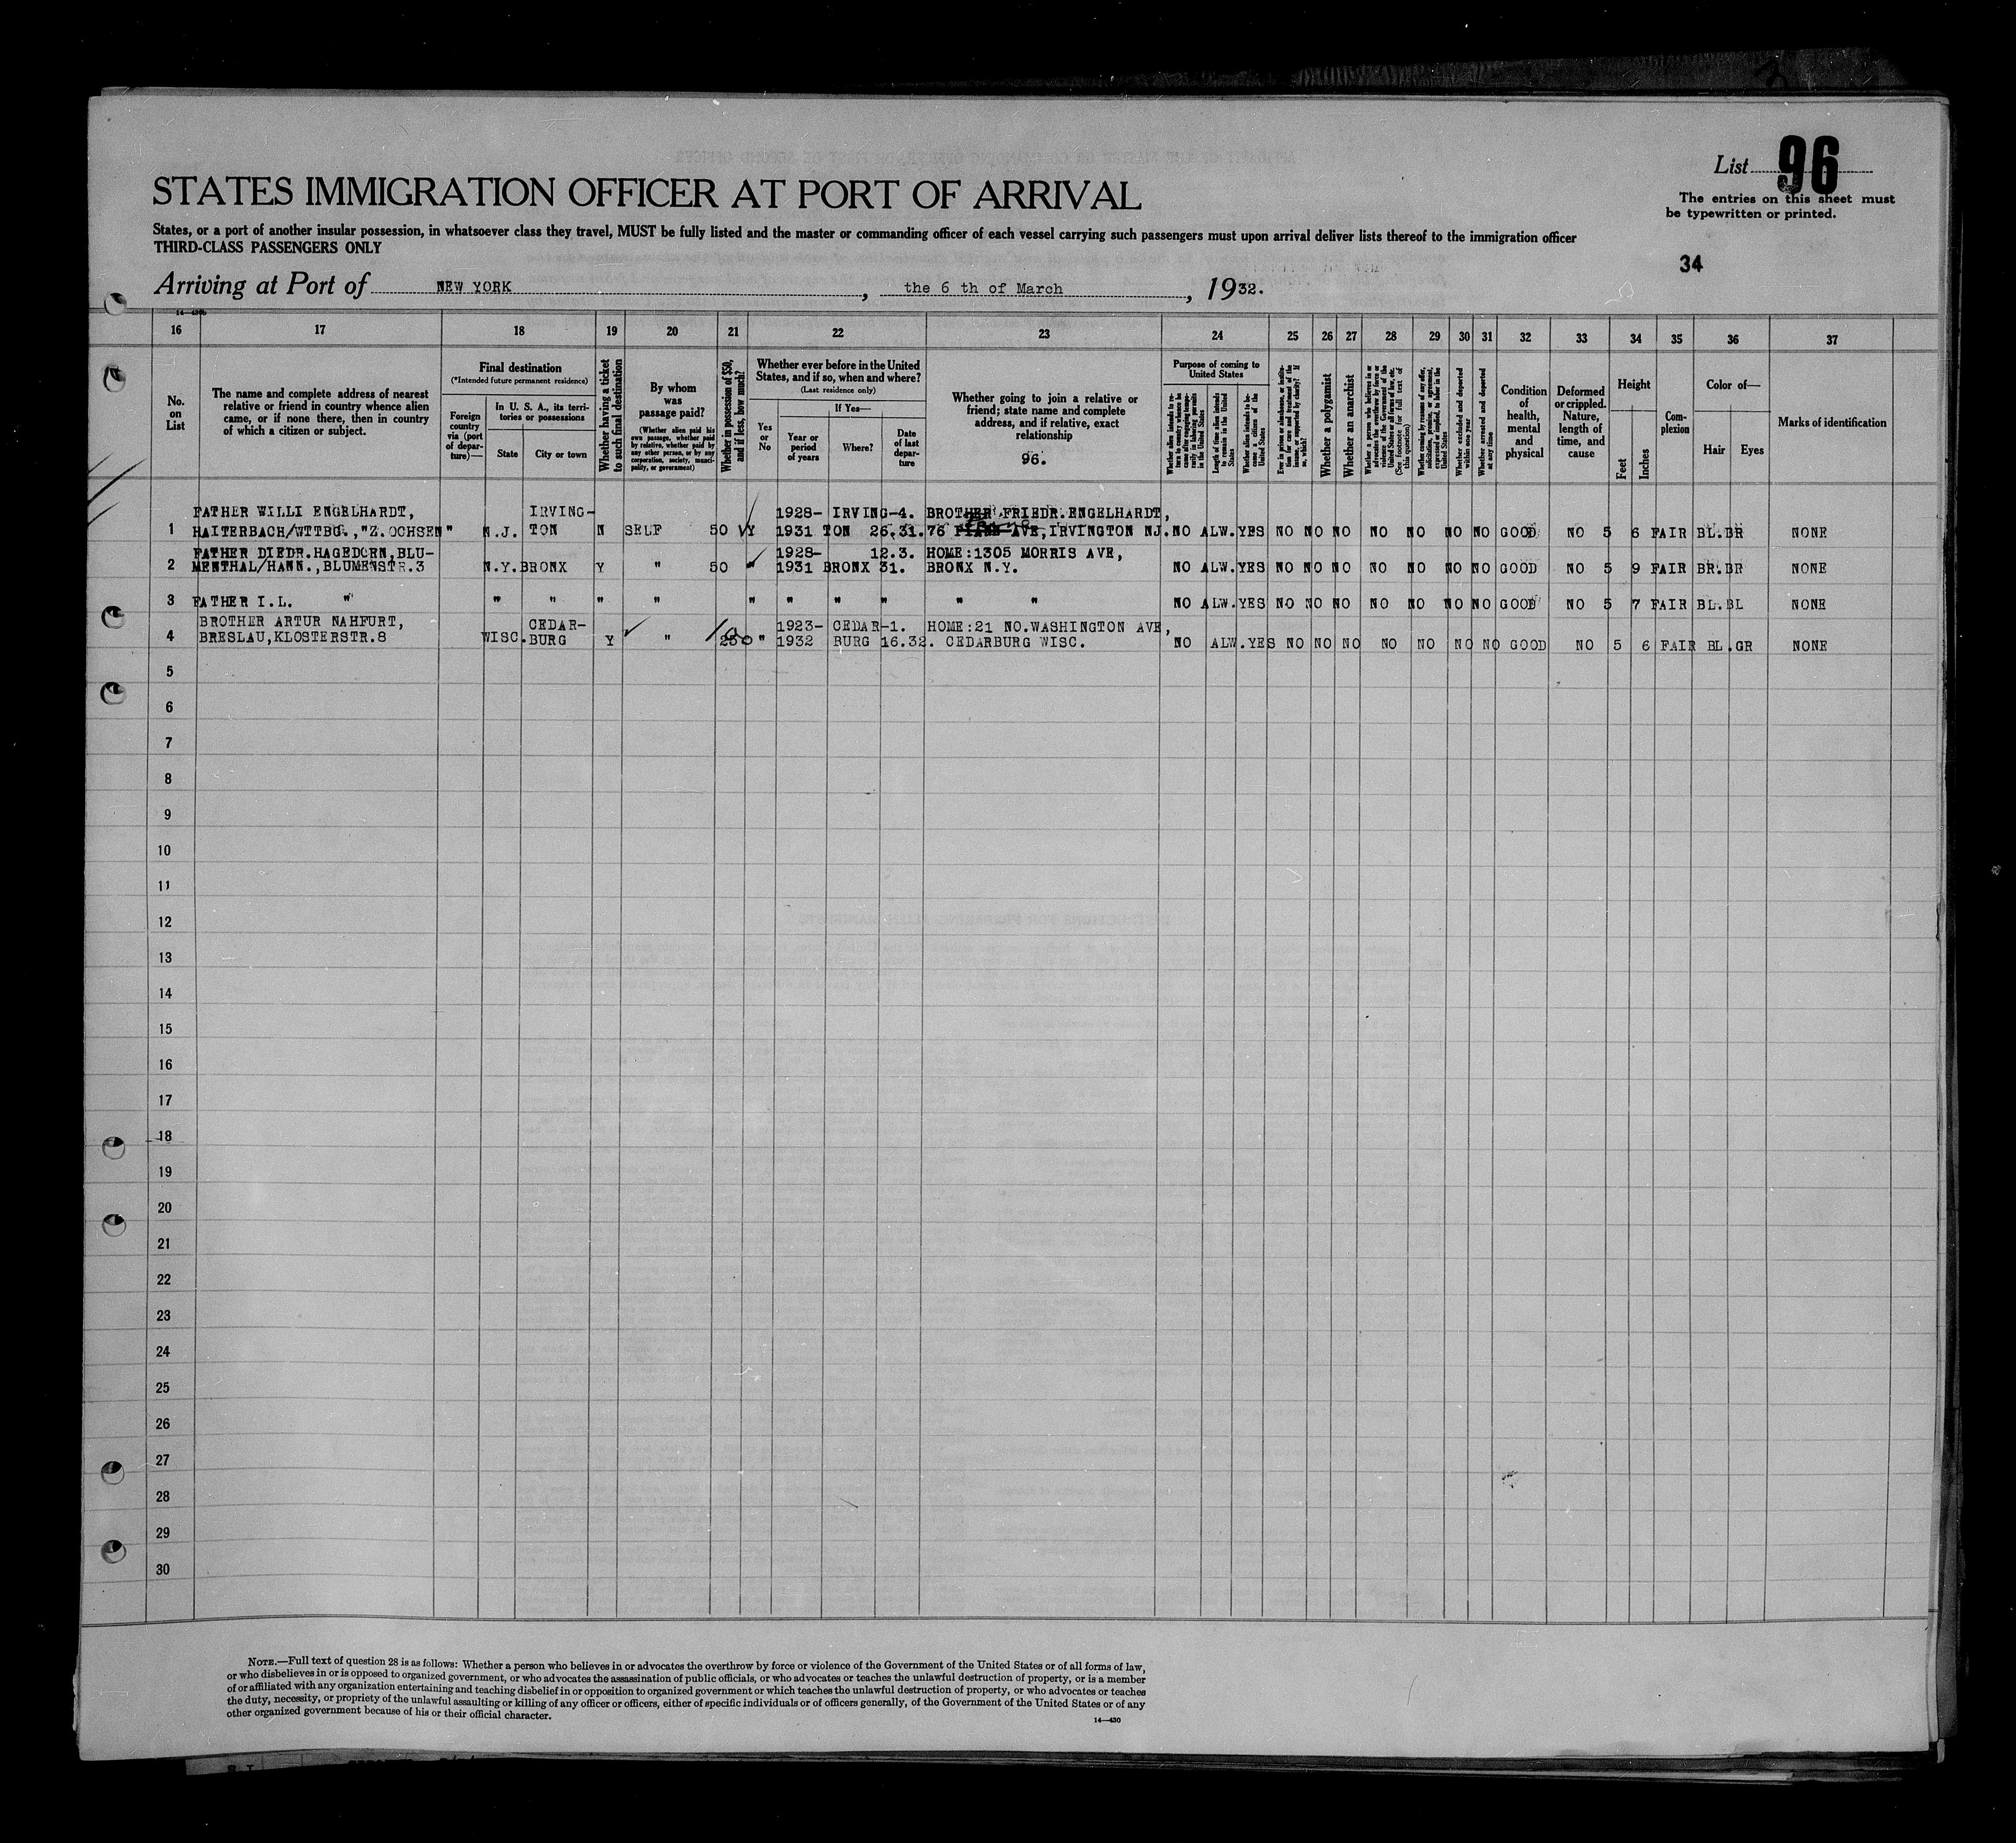 List 96
The entries on this sheet must
be typewritten or printed.
STATES IMMIGRATION OFFICER AT PORT OF ARRIVAL
States, or a port of another insular possession, in whatsoever class they travel, MUST be fully listed and the master or commanding officer of each vessel carrying such passengers must upon arrival deliver lists thereof to the immigration officer
THIRD-CLASS PASSENGERS ONLY
34
Arriving at Port of NEW YORK, the 6 th of March, 1932.
16 17 18 19 20 21 22 23 24 25 26 27 28 29 30 31 32 33 34 35 36 37
No. on List
The name and complete address of nearest
relative or friend in country whence alien
came, or if none there, then in country
of which a citizen or subject.
Final destination
(*Intended future permanent residence)
Foreign country via (port of depar-ture)—
In U. S. A., its terri-
tories or possessions
State
City or town
Whether having a ticket
to such final destination
By whom
was
passage paid?
(Whether alien paid his
own passage, whether paid
by relative, whether paid by
any other person, or by any
corporation, society, munici-
pality, or government)
Whether in possession of $50,
and if less, how much?
Whether ever before in the United
States, and if so, when and where?
(Last residence only)
Yes or No
If Yes—
Year or period of years
Where?
Date of last depar-ture
Whether going to join a relative or
friend; state name and complete
address, and if relative, exact
relationship
96.
Purpose of coming to
United States
Length of time alien intends
to remain in the United
States
Whether alien intends to be-
come a citizen of the
United States
Whether a polygamist
Whether an anarchist
Whether excluded and deported
within one year
Whether arrested and deported
at any time
Condition
of
health,
mental
and
physical
Deformed
or crippled.
Nature,
length of
time, and
cause
Height
Feet
Inches
Com-
plexion
Color of—
Hair
Eyes
Marks of identification
FATHER WILLI ENGELHARDT, IRVING- 1928- IRVING-4. BROTHER FRIEDR.ENGELHARDT,
1 HAITERBACH/WTTBG.,"Z.OCHSEN" N.J. TON N SELF 50 Y 1931 TON 26.31. 76 AVE,IRVINGTON NJ. NO ALW. YES NO NO NO NO NO NO NO GOOD NO 5 6 FAIR BL. BR NONE
FATHER DIEDR.HAGEDORN,BLU- 1928- 12.3. HOME:1305 MORRIS AVE,
2 MENTHAL/HANN.,BLUMENSTR.3 N.Y. BRONX Y " 50 " 1931 BRONX 31. BRONX N.Y. NO ALW. YES NO NO NO NO NO NO NO GOOD NO 5 9 FAIR BR. BR NONE
3 FATHER I.L. " " " " " " " " " " " NO ALW. YES NO NO NO NO NO NO NO GOOD NO 5 7 FAIR BL. BL NONE
BROTHER ARTUR NAHFURT, CEDAR- 1923- CEDAR-1. HOME:21 NO.WASHINGTON AVE,
4 BRESLAU,KLOSTERSTR.8 WISC. BURG Y " " 1932 BURG 16.32. CEDARBURG WISC. NO ALW. YES NO NO NO NO NO NO NO GOOD NO 5 6 FAIR BL. GR NONE
5
6
7
8
9
10
11
12
13
14
15
16
17
18
19
20
21
22
23
24
25
26
27
28
29
30
NOTE.—Full text of question 28 is as follows: Whether a person who believes in or advocates the overthrow by force or violence of the Government of the United States or of all forms of law,
or who disbelieves in or is opposed to organized government, or who advocates the assassination of public officials, or who advocates or teaches the unlawful destruction of property, or is a member
of or affiliated with any organization entertaining and teaching disbelief in or opposition to organized government or which teaches the unlawful destruction of property, or who advocates or teaches
the duty, necessity, or propriety of the unlawful assaulting or killing of any officer or officers, either of specific individuals or of officers generally, of the Government of the United States or of any
other organized government because of his or their official character.
14—430